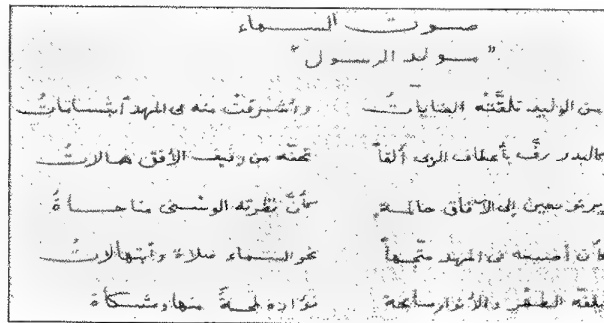 صوت السماء
"مولد الرسول"
من الوليد تلقَّتْه العنايات وأشرقتْ منه فى المهد ابتسامات
كالبدر رفَّ بأعطاف الربى ألقاً تحفّه من رفيف الأفق هالات
يرنو بعين إلى الآفاق حالمة كأنَّ نظرته الوسنى مناجاة
كأن أصبعه فى المهد متّجهاً نحو السماء صلاة وابتهالات
يلفّه الطهر والأنوار سابحة فؤاده لمحةٌ منها ومشكاة